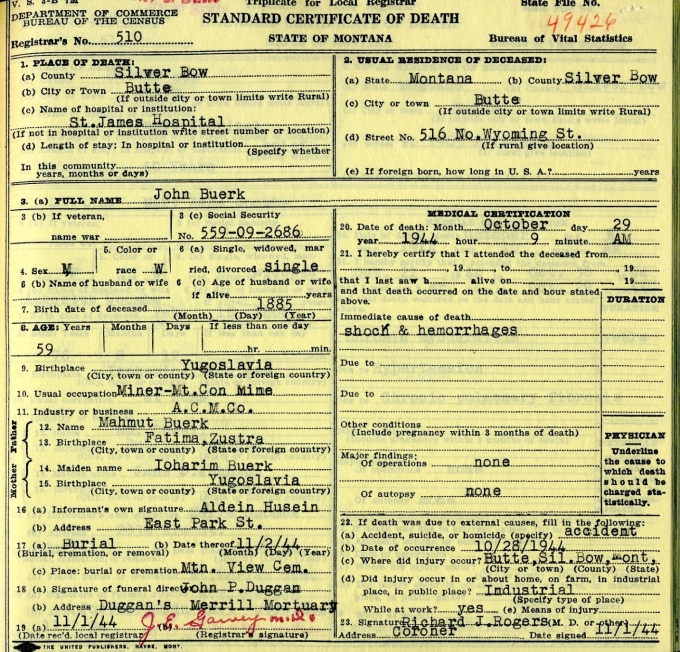 V. S. 3-B 7M Triplicate for Local Registrar State File No.
DEPARTMENT OF COMMERCE
BUREAU OF THE CENSUS
STANDARD CERTIFICATE OF DEATH
49426
Registrar's No. 510
STATE OF MONTANA
Bureau of Vital Statistics
1. PLACE OF DEATH:
(a) County Silver Bow
(b) City or Town Butte
(If outside city or town limits write Rural)
(c) Name of hospital or institution:
St.James Hospital
(If not in hospital or institution write street number or location)
(d) Length of stay; In hospital or institution
(Specify whether
In this community
years, months or days)
2. USUAL RESIDENCE OF DECEASED:
(a) State Montana (b) County Silver Bow
(c) City or town Butte
(If outside city or town limits write Rural)
(d) Street No. 516 No.Wyoming St.
(If rural give location)
(e) If foreign born, how long in U. S. A.? years
3. (a) FULL NAME John Buerk
3 (b) If veteran,
name war
3 (c) Social Security
No. 559-09-2686
4. Sex M
5. Color or
race W
6 (a) Single, widowed, mar
ried, divorced single
6 (b) Name of husband or wife
6 (c) Age of husband or wife
if alive years
7. Birth date of deceased 1885
(Month) (Day) (Year)
8. AGE: Years Months Days If less than one day
59 hr. min.
9. Birthplace Yugoslavia
(City, town or county) (State or foreign country)
10. Usual occupation Miner-Mt.Con Mime
11. Industry or business A.C.M.Co.
Father
12. Name Mahmut Buerk
13. Birthplace Fatima,Zustra
(City, town or county) (State or foreign country)
Mother
14. Maiden name Ioharim Buerk
15. Birthplace Yugoslavia
(City, town or county) (State or foreign country)
16 (a) Informant's own signature Aldein Husein
(b) Address East Park St.
17 (a) Burial (b) Date thereof 11/2/44
(Burial, cremation, or removal) (Month) (Day) (Year)
(c) Place: burial or cremation Mtn. View Cem.
18 (a) Signature of funeral direc John P.Duggan
(b) Address Duggan's Merrill Mortuary
19 (a) 11/1/44 (b) J. E. Garvey m.d.
(Date rec'd. local registrar) (Registrar's signature)
MEDICAL CERTIFICATION
20. Date of death: Month October day 29
year 1944 hour 9 minute AM
21. I hereby certify that I attended the deceased from
, 19 to , 19
that I last saw h alive on , 19
and that death occurred on the date and hour stated
above.
DURATION
Immediate cause of death
shock & hemorrhages
Due to
Due to
Other conditions
(Include pregnancy within 3 months of death)
Major findings:
Of operations none
Of autopsy none
PHYSICIAN
Underline
the cause to
which death
should be
charged sta-
tistically.
22. If death was due to external causes, fill in the following:
(a) Accident, suicide, or homicide (specify) accident
(b) Date of occurrence 10/28/1944
(c) Where did injury occur? Butte,Sil.Bow,Mont,
(City or town) (County) (State)
(d) Did injury occur in or about home, on farm, in industrial
place, in public place? Industrial
(Specify type of place)
While at work? yes (e) Means of injury
23. Signature Richard J.Rogers (M. D. or other)
Address Coroner Date signed 11/1/44
THE UNITED PUBLISHERS, HAVRE, MONT.